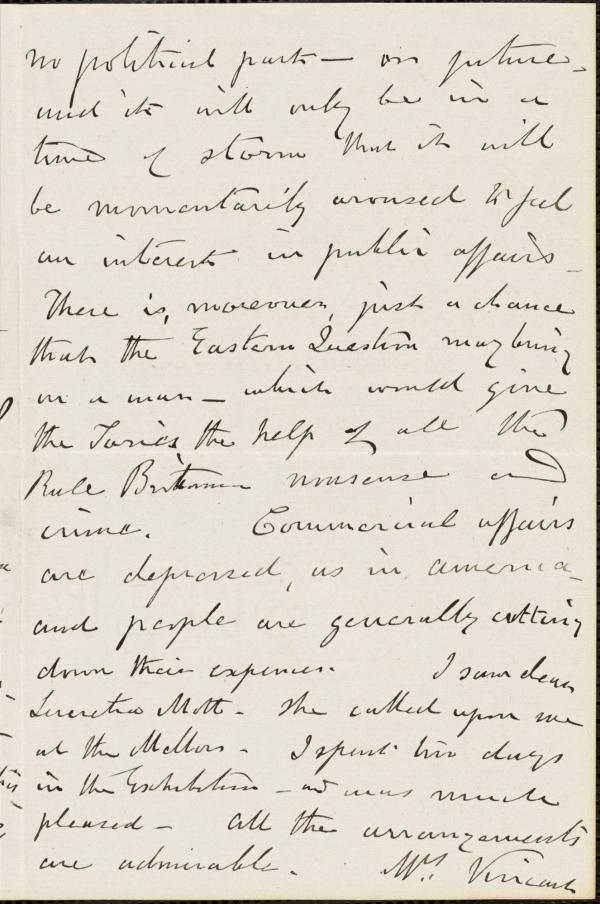 no political past — or future,
and it will only be in a
time of storm that it will
be momentarily aroused to feel
an interest in public affairs —
There is, moreover, just a chance
that the Eastern Question may bring
on a war — which would give
the Tories the help of all the
Rule Britannia nonsense and
crime. Commercial affairs
are depressed, as in America —
and people are generally cutting
down their expenses. I saw dear
Lucretia Mott — She called upon me
at the Mellors — I spent two days
in the Exhibition — and was much
pleased — All the arrangements
are admirable. Mrs. Vincent